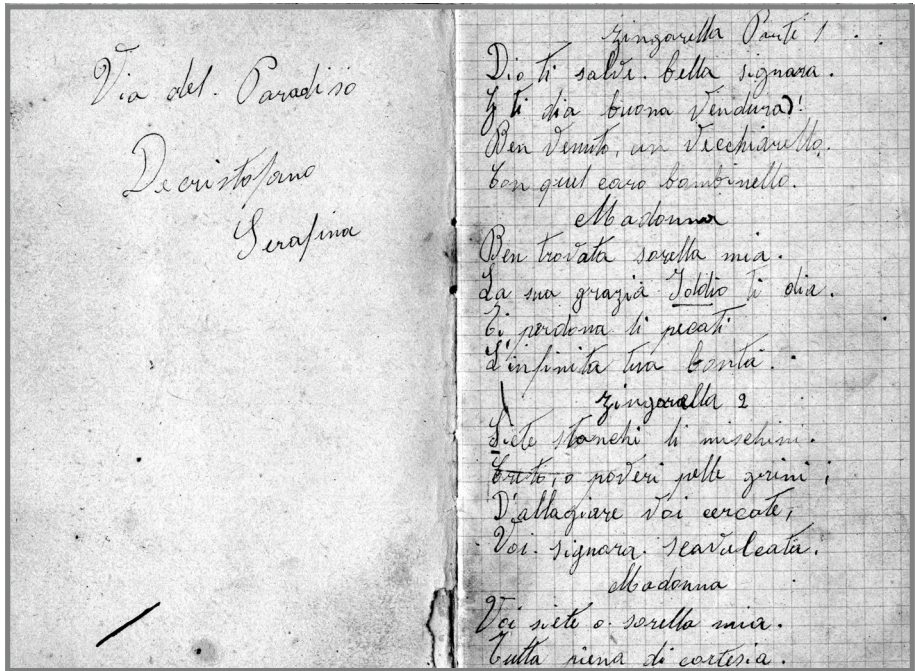 Via del. Paradiso
Decristofano
Serafina
zingarella Parte 1
Dio ti salvi. bella signara.
E ti dia buona Vendura!
Ben Venuto, un Vecchiarello,
Con quel caro bambinello.
Madonna
Ben trovata sorella mia.
La sua grazia Iddio ti dia.
Ti perdona li pecati
L'infinita tua bontá.
zingarella 2
Siete stanchi li mischini.
o poveri pelle grini;
D'allagiare voi cercate,
Voi. signara. scavalcata.
Madonna
Voi siete o. sorella mia.
Tutta piena di cortesia.